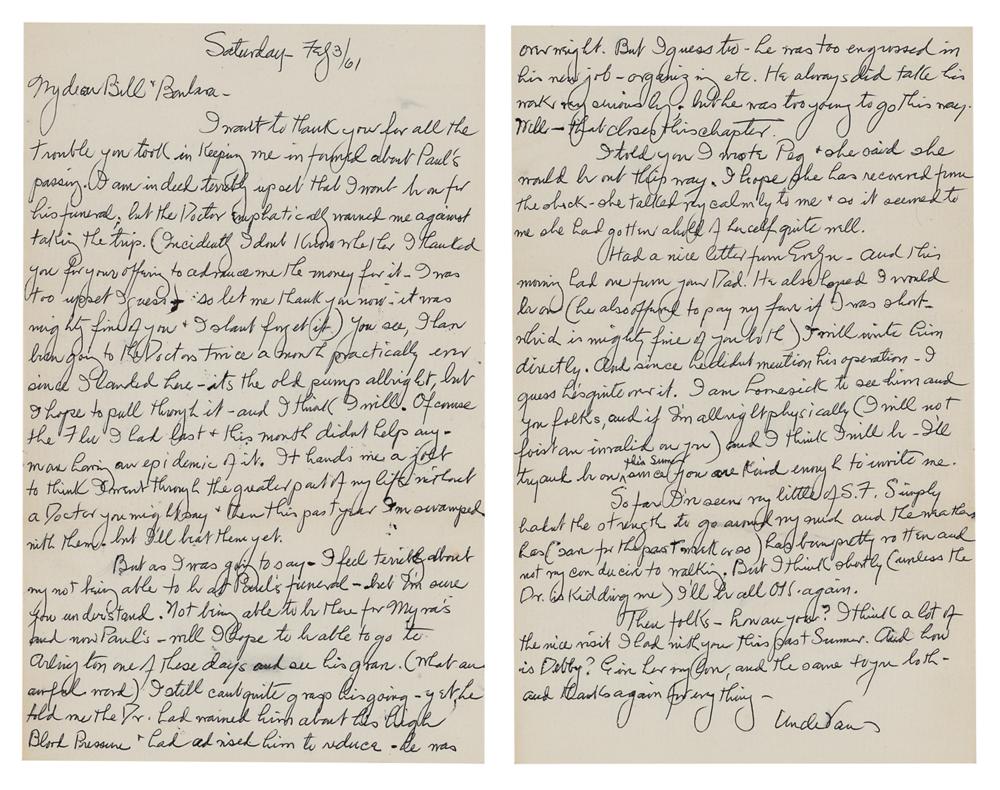 Saturday - Feb 3/61
My dear Bill & Barbara -
I want to thank you for all the
trouble you took in keeping me informed about Paul's
passing. I am indeed terribly upset that I wont be on for
his funeral, but the Doctor emphatically warned me against
taking the trip. (Incidently I dont know whether I thanked
you for your offering to advance me the money for it - I was
too upset I guess - so let me thank you now - it was
mighty fine of you & I shant forget it.) You see, I have
been going to the Doctors twice a month practically ever
since I landed here - its the old pump allright, but
I hope to pull through it - and I think I will. Of course
the Flu I had last & this month didnt help any -
having an epidemic of it. It hands me a jolt
to think I went through the greater part of my life without
a Doctor you might say & then this past year I'm swamped
with them - but I'll beat them yet.
But as I was going to say - I feel terrible about
my not being able to be at Paul's funeral - but I'm sure
you understand. Not being able to be there for Myra's
and now Paul's - well I hope to be able to go to
Arlington one of these days and see his grave. (What an
awful word) I still cant quite grasp his going - yet he
told me the Dr. had warned him about his high
Blood Pressure & had advised him to reduce - he was
overweight. But I guess too - he was too engrossed in
his new job - organizing etc. He always did take his
work very seriously. but he was too young to go this way.
Well - that closes this chapter.
I told you I wrote Peg & she said she
would be out this way. I hope she has recovered from
the shock - she talked very calmly to me & so it seemed to
me she had gotten ahold of herself quite well.
Had a nice letter from Evelyn - and this
morning had one from your Dad. He also hoped I would
be on (he also offered to pay my fare if I was short -
which is mighty fine of you both) I will write him
directly. And since he didnt mention his operation - I
guess he's quite over it. I am homesick to see him and
you folks, and if I'm allright physically (I will not
foist an invalid on you) and I think I will be - I'll
try and be on this Sum since you are kind enough to invite me.
So far I've seen very little of S.F. Simply
havent the strength to go around very much and the weather
has (save for the past week or so) has been pretty rotten and
not very conducive to walking. But I think shortly (unless the
Dr. is kidding me) I'll be all OK. again.
Then folks - how are you? I think a lot of
the nice visit I had with you this past Summer. And how
is Debby? Give her my love, and the same to you both -
and thanks again for everything -
Uncle Vans